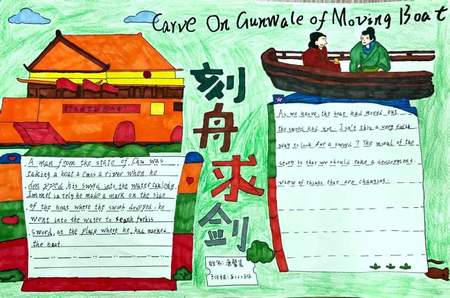 Carve On Gunwale of Moving Boat
刻舟求剑
A man from the state of Chu was
taking a boat across a river when he
dropped his sword into the water
he made a mark on the side
of the boat where the sword dropped. he
went into the water to search for his
sword, at the place where he has marked
the boat.
As we above, the boat had moved but
the sword had not. Isn't this a very foolish
way to look for a sword? The moral of the
story is that we should take a
view of things that are changing.
姓名: